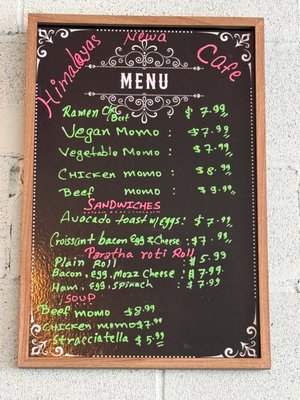 Newa
Himalayas Cafe
MENU
Ramen Ckn Beef $7.99
Vegan Momo : $7.99
Vegetable Momo : $7.99
CHICKEN momo : $8.99
Beef momo : $9.99
SANDWICHES
Avocado toast w/eggs : $7.99
Croissant bacon Egg & Cheese : $7.99
Paratha roti Roll
Plain Roll : $5.99
Bacon, egg, Mozz Cheese : $7.99
Ham, egg, spinach : $7.99
SOUP
Beef momo $8.99
CHICKEN momo $7.99
Stracciatella $5.99